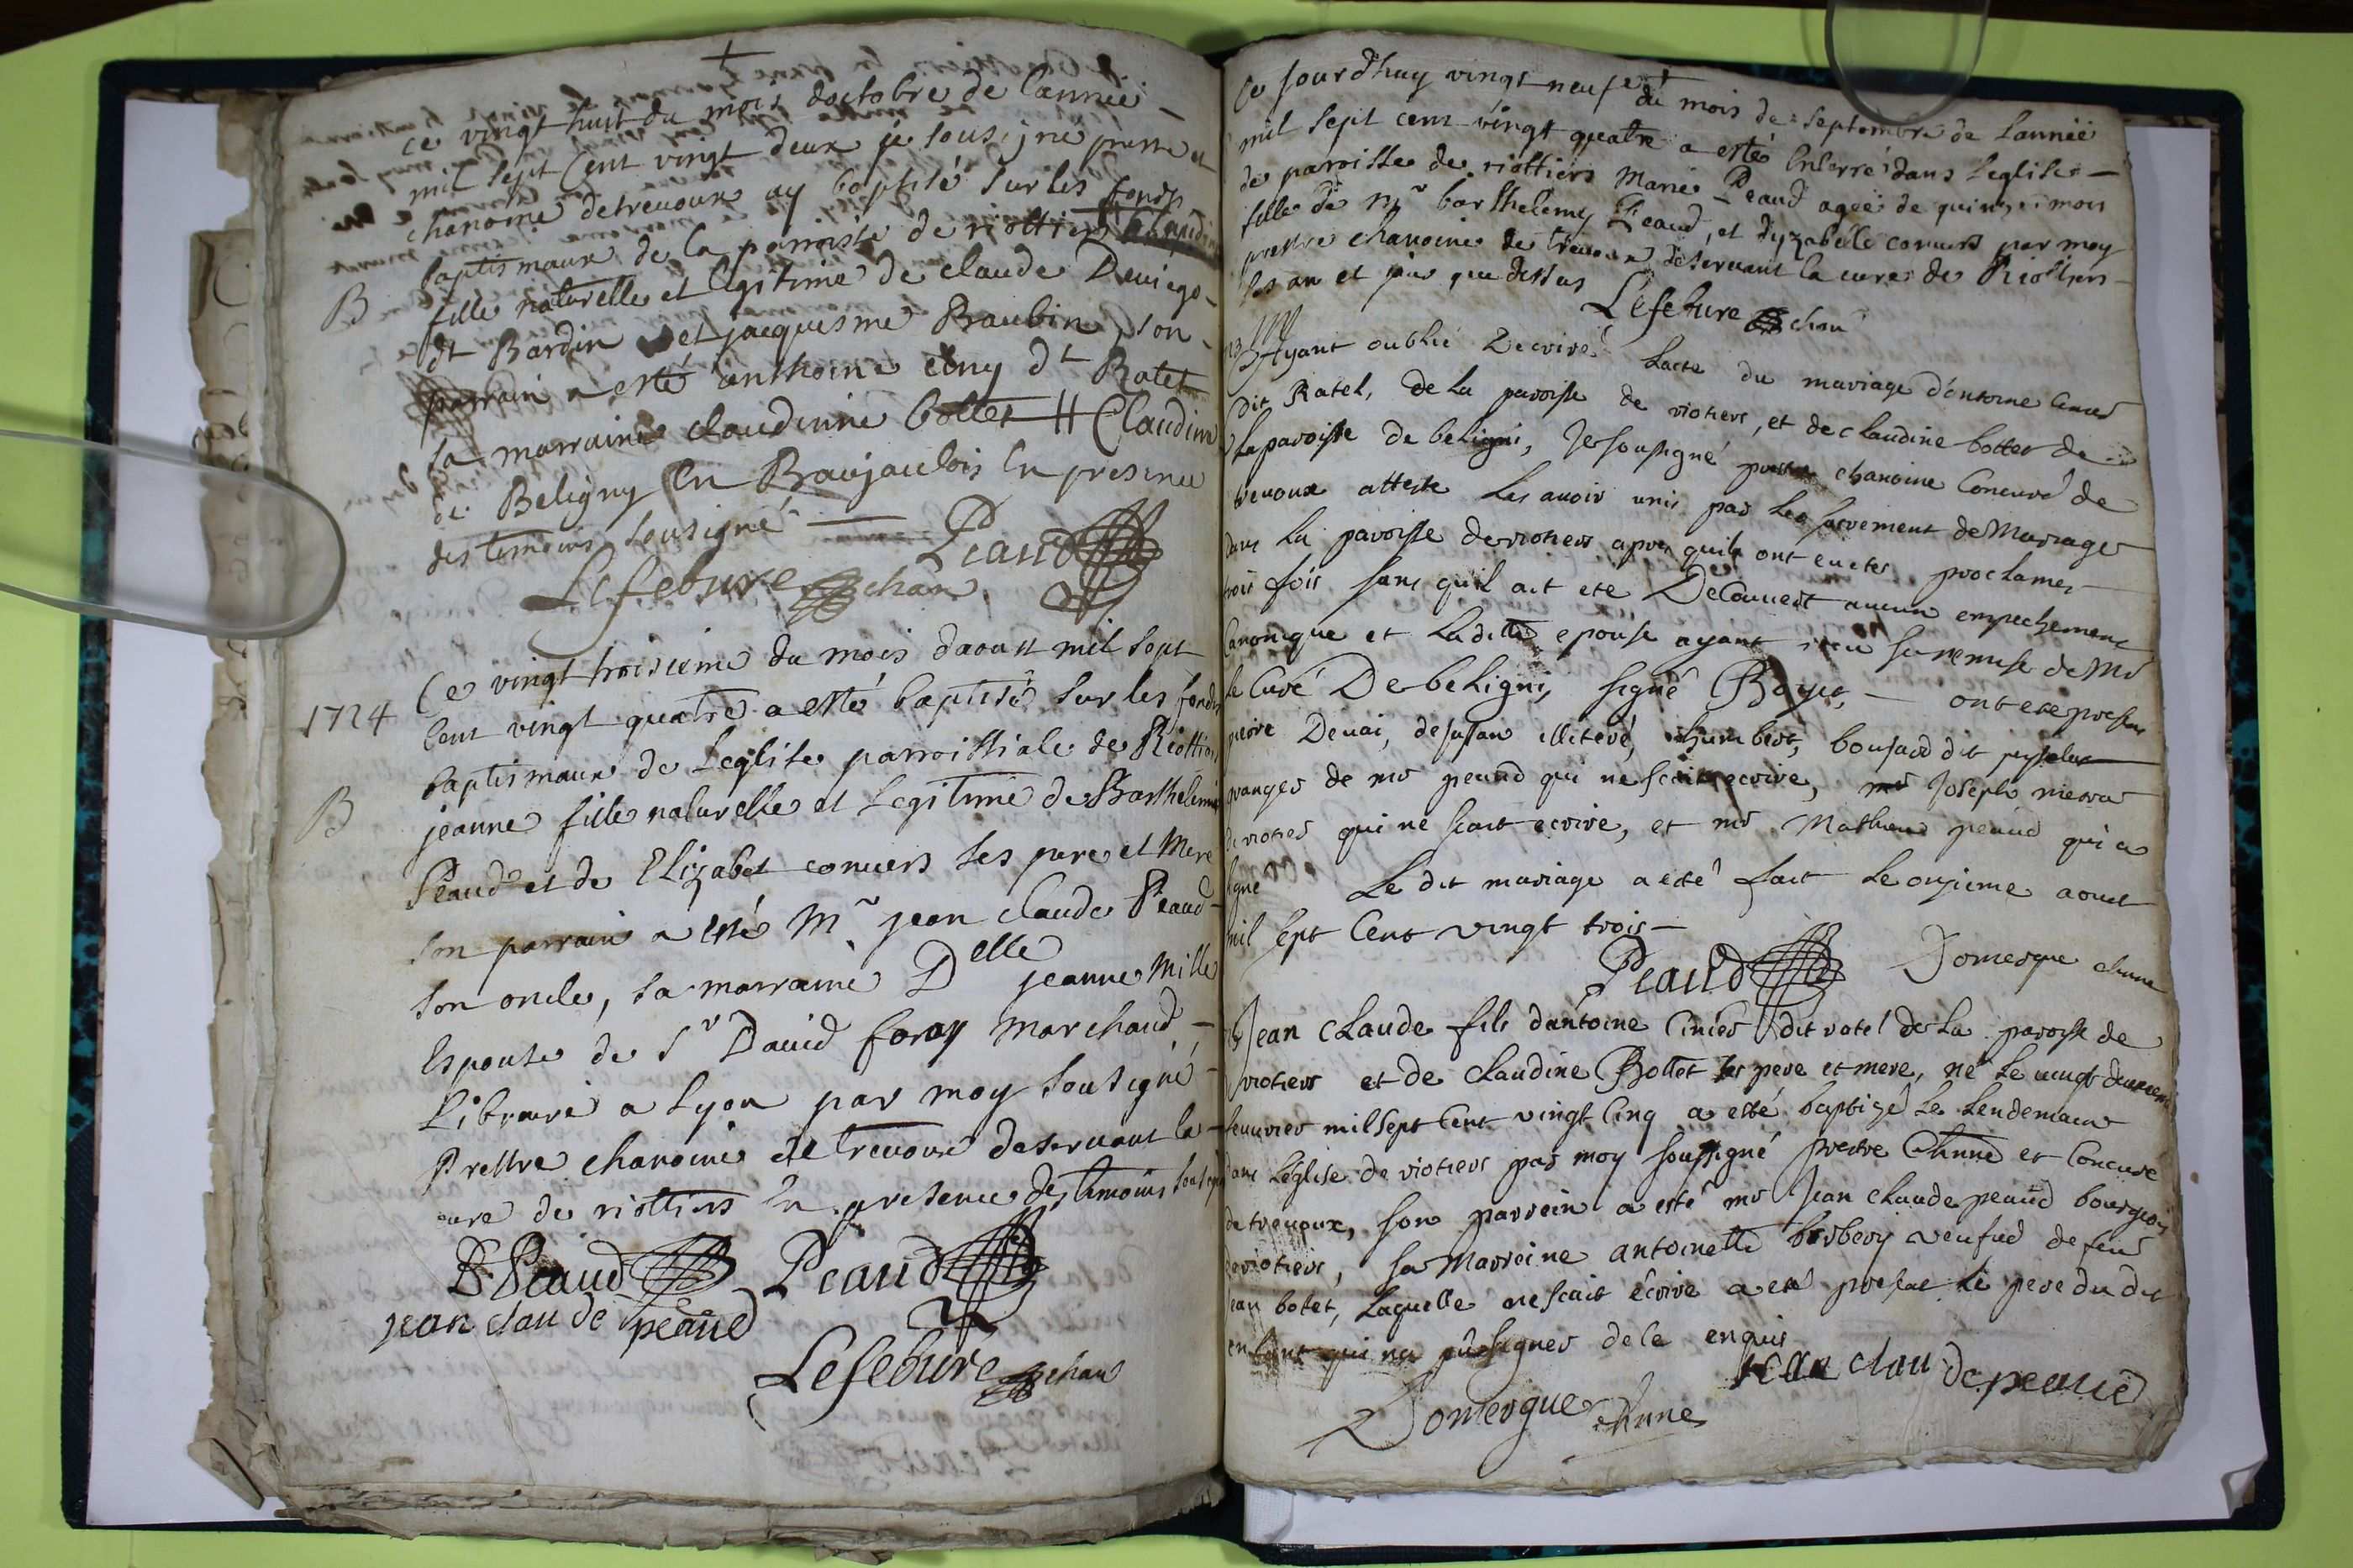 ce vingt huit du mois doctobre de lannée
mil sept Cent vingt deux je sousigné prestre et
chanoine de trevoux ay baptisé sur les fonds
baptismaux de la parroisse de riottiers
B
fille naturelle et legitime de claude
dt Bardin et jacquesme Baubin, son
parrain a esté anthoine dt Ratel
sa marraine claudinne bottet H Claudine
de Beligny En Baujaulois En presence
des temoins sousigné
Peaud
Lefebure chan
Ce vingt troisieme du mois daoust mil sept
1724
Cent vingt quatre a esté baptisé sur les fonds
baptismaux de Leglise parroissiale de Riottiers
B
jeanne fille naturelle et Legitime de Barthelemi
Peaud et de Elizabet conuers ses pere et Mere
son parrain a esté Mr jean claude Peaud
son oncle, sa marraine Delle jeanne Mille
Espouse de Sr Dauid foray Marchand
Libraire a Lyon par moy sousigné
Prestre chanoine de trevoux deseruant la
cure de riottiers En presence des temoins
B Peaud Peaud
jean claude peaud
Lefebure chan
Ce jourdhuy vingt neufe du mois de septembre de lannéé
mil sept cent vingt quatre a esté Enterré dans leglise
de paroisse de riottiers Marie Peaud agéé de quinze mois
fille de Mr barthelemy Peaud, et dyzabelle conuers par moy
prestre chanoine de trevoux deseruant la cure de Riottiers
les an et jour que dessus Lefebure chan
Ayant oublié Decrire Lacte du mariage dentoine
dit Ratel, de la paroisse de riotiers, et de claudine bottet de
la paroisse de beligni, Je soussigné prestre chanoine Concuré de
trevoux atteste les avoir unis par le sacrement de Mariage
dans la paroisse de riotiers apres quils ont eu etes proclames
trois fois sans quil ait ete Decouvert aucun empechement
Canonique et laditte epouse ayant sa remise de Mr
le Curé De beligni, signé Boyer, ont ete presens
pierre Devai, illiteré, humbert, boujard dit
granger de mr peaud qui ne scait ecrire, mr Joseph
de riotiers qui ne scait ecrire, et mr Mathieu peaud qui a
signé Le dit mariage a esté fait le onzieme aoust
mil sept Cent vingt trois
Peaud Domergue chnne
Jean Claude fils dantoine dit ratel de la paroisse de
riotiers et de Claudine Bottet ses pere et mere, né le vingt
feuvrier mil sept Cent vingt Cinq a esté baptizé le lendemain
dans Leglise de riotiers par moy soussigné prestre Chnne et Concure
de trevoux, son parrein a esté mr Jean claude peaud bourgeois
de riotiers, sa Marreine antoinette berbery veufue de feu
jean botet, laquelle ne scait écrire a eté present le pere du dit
enfant qui na pû signer de ce enquis
jean claude peaud
Domergue chnne